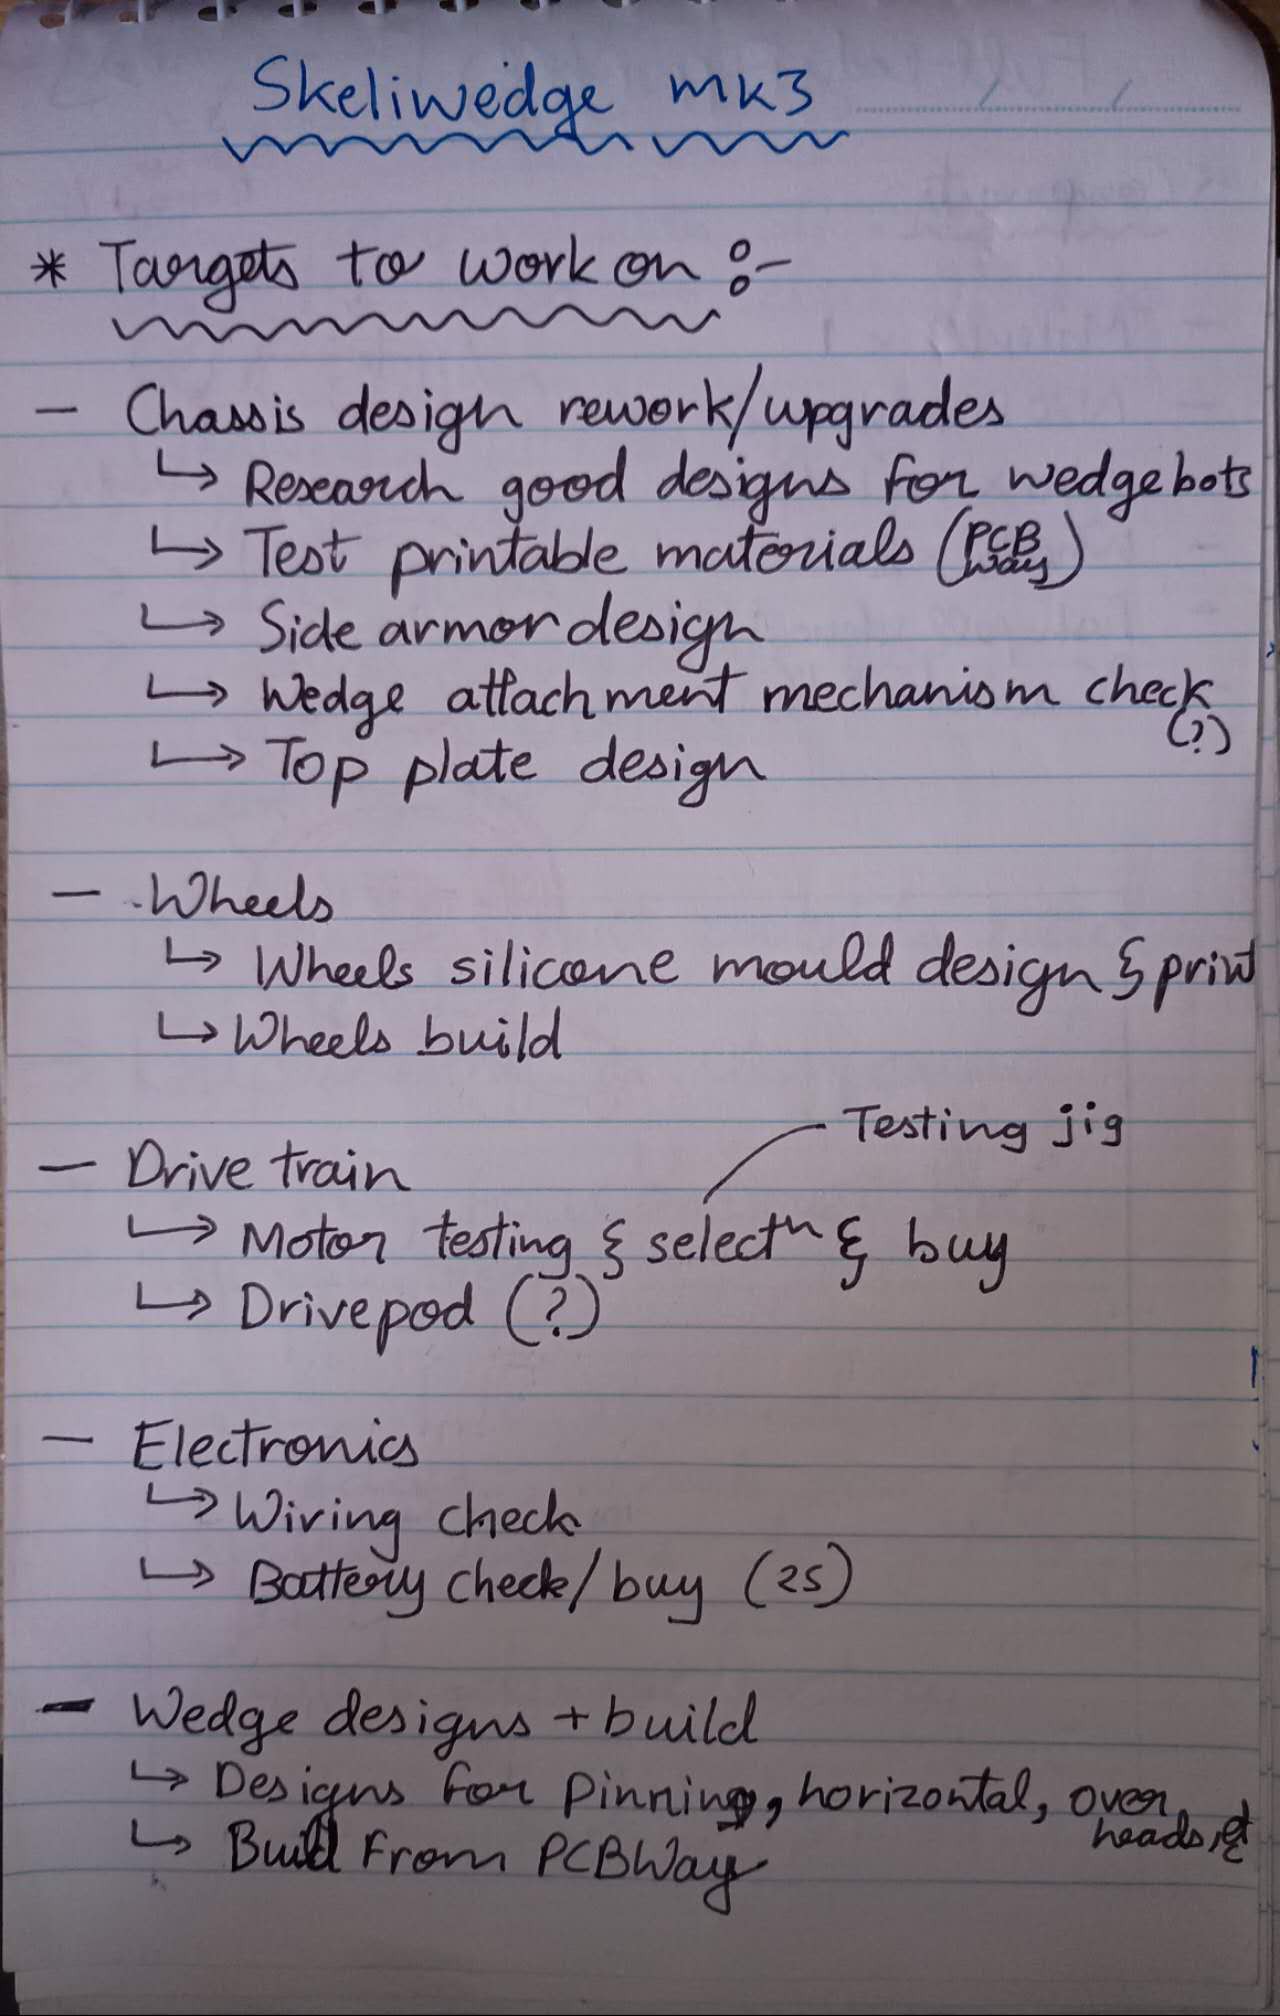 Skeliwedge mk3
* Targets to work on :-
- Chassis design rework/upgrades
↳ Research good designs for wedgebots
↳ Test printable materials (PCB Way)
↳ Side armor design
↳ Wedge attachment mechanism check (?)
↳ Top plate design
- Wheels
↳ Wheels silicone mould design & print
↳ Wheels build
Testing jig
- Drive train
↳ Motor testing & selectⁿ & buy
↳ Drivepod (?)
- Electronics
↳ Wiring check
↳ Battery check/buy (2S)
- Wedge designs + build
↳ Designs for pinning, horizontal, over heads,
↳ Build from PCBWay